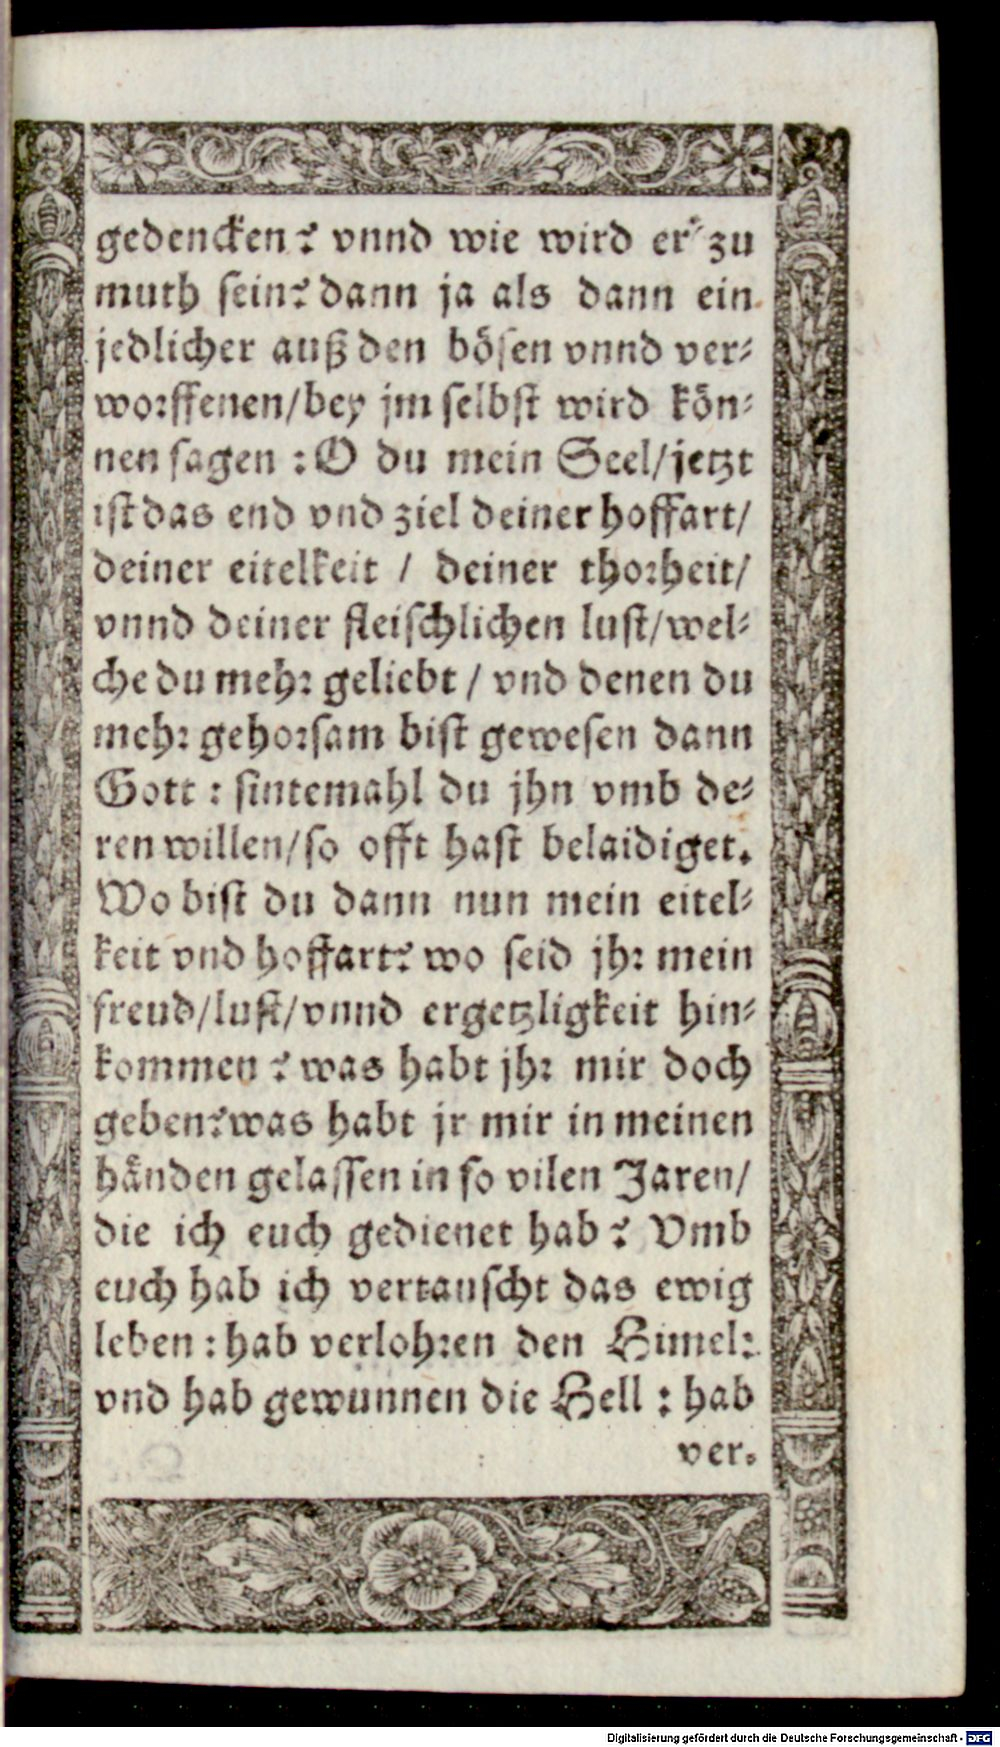 gedencken? vnnd wie wird er zu
muth sein? dann ja als dann ein
jedlicher auß den bösen vnnd ver-
worffenen/bey jm selbst wird kön-
nen sagen : O du mein Seel/jetzt
ist das end vnd ziel deiner hoffart/
deiner eitelkeit / deiner thorheit/
vnnd deiner fleischlichen lust/wel-
che du mehr geliebt / vnd denen du
mehr gehorsam bist gewesen dann
Gott : sintemahl du jhn vmb de-
ren willen/so offt hast belaidiget.
Wo bist du dann nun mein eitel-
keit vnd hoffart? wo seid jhr mein
freud/lust/vnnd ergetzligkeit hin-
kommen? was habt jhr mir doch
geben?was habt jr mir in meinen
händen gelassen in so vilen Jaren/
die ich euch gedienet hab? Vmb
euch hab ich vertauscht das ewig
leben : hab verlohren den Himel:
vnd hab gewunnen die Hell : hab
ver-
Digitalisierung gefördert durch die Deutsche Forschungsgemeinschaft - DFG